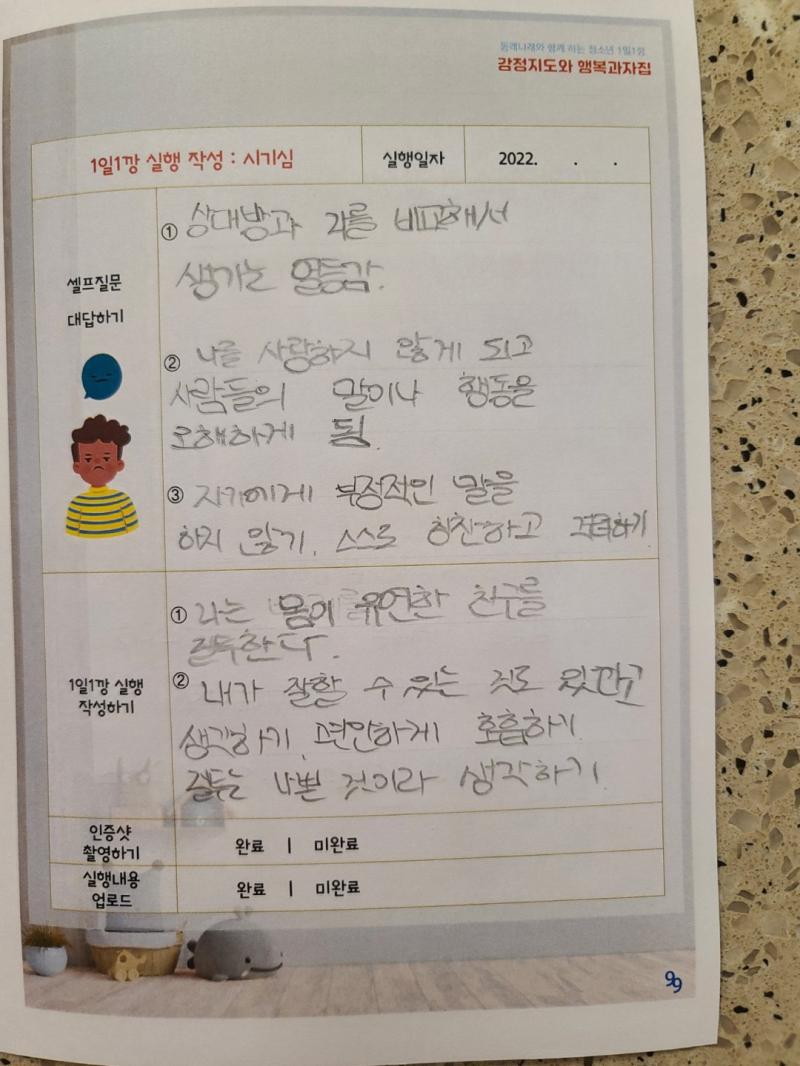 동래나래와 함께 하는 청소년 1일1깡
감정지도와 행복과자집
1일1깡 실행 작성 : 시기심
실행일자
2022. . .
셀프질문
대답하기
① 상대방과 나를 비교해서
생기는 열등감.
② 나를 사랑하지 않게 되고
사람들의 말이나 행동을
오해하게 됨.
③ 자기에게 부정적인 말을
하지 않기. 스스로 칭찬하고 격려하기
1일1깡 실행
작성하기
① 나는 몸이 유연한 친구를
질투한다.
② 내가 잘할 수 있는 것도 있다고
생각하기. 편안하게 호흡하기.
질투는 나쁜 것이라 생각하기.
인증샷
촬영하기
완료 | 미완료
실행내용
업로드
완료 | 미완료
99